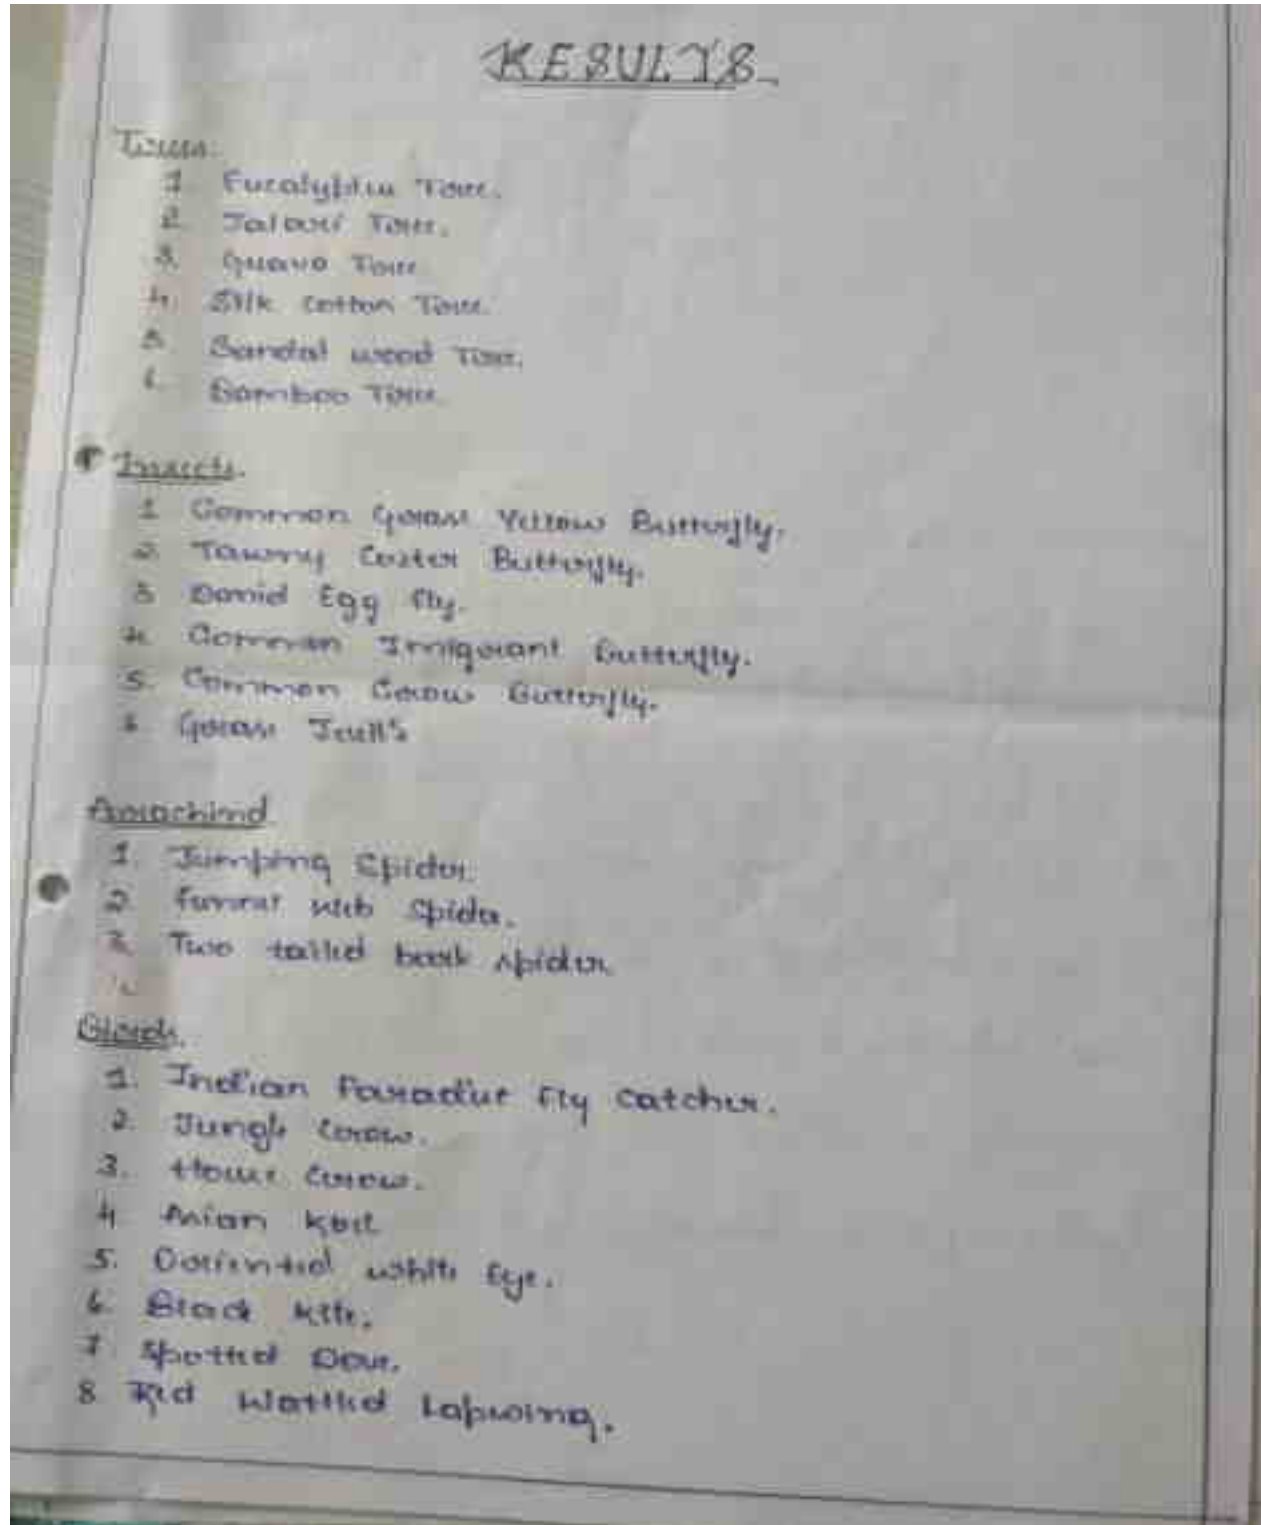 RESULTS
Trees:
1. Eucalyptus Tree.
2. Jalari Tree.
3. Guava Tree
4. Silk cotton Tree.
5. Sandal wood Tree.
6. Bamboo Tree.
Insects.
1 Common Grass Yellow Butterfly.
2. Tawny Coster Butterfly.
3 Danid Egg fly.
4. Common Imigrant Butterfly.
5. Common Crow Butterfly.
6 Grass
Arachind
1. Jumping Spider.
2. funnel web Spider.
3. Two tailed bark spider
Birds.
1. Indian Paradise fly catcher.
2. Jungle Crow.
3. House Crow.
4 Asian koel
5. Oriental white Eye.
6. Black kite.
7. Spotted Dove.
8. Red Wattled Lapwing.